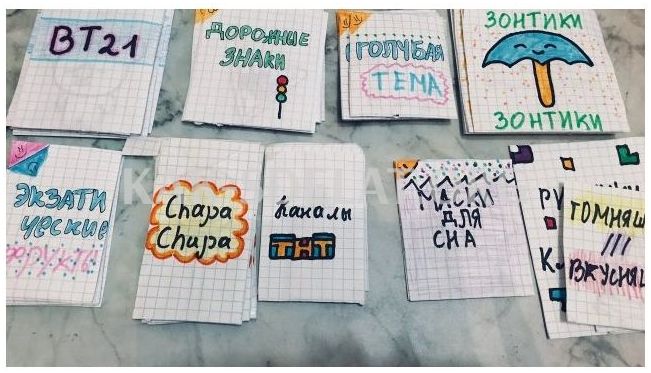 ВТ21
ДОРОЖНЫЕ
ЗНАКИ
ГОЛУБАЯ
ТЕМА
ЗОНТИКИ
ЗОНТИКИ
ЭКЗАТИ
ческие
ФРУКТЫ
Chapa
Chupa
каналы
ТНТ
МАСКИ
ДЛЯ
СНА
РУ
К
ТОМНЯШ
///
ВКУСНЯШ